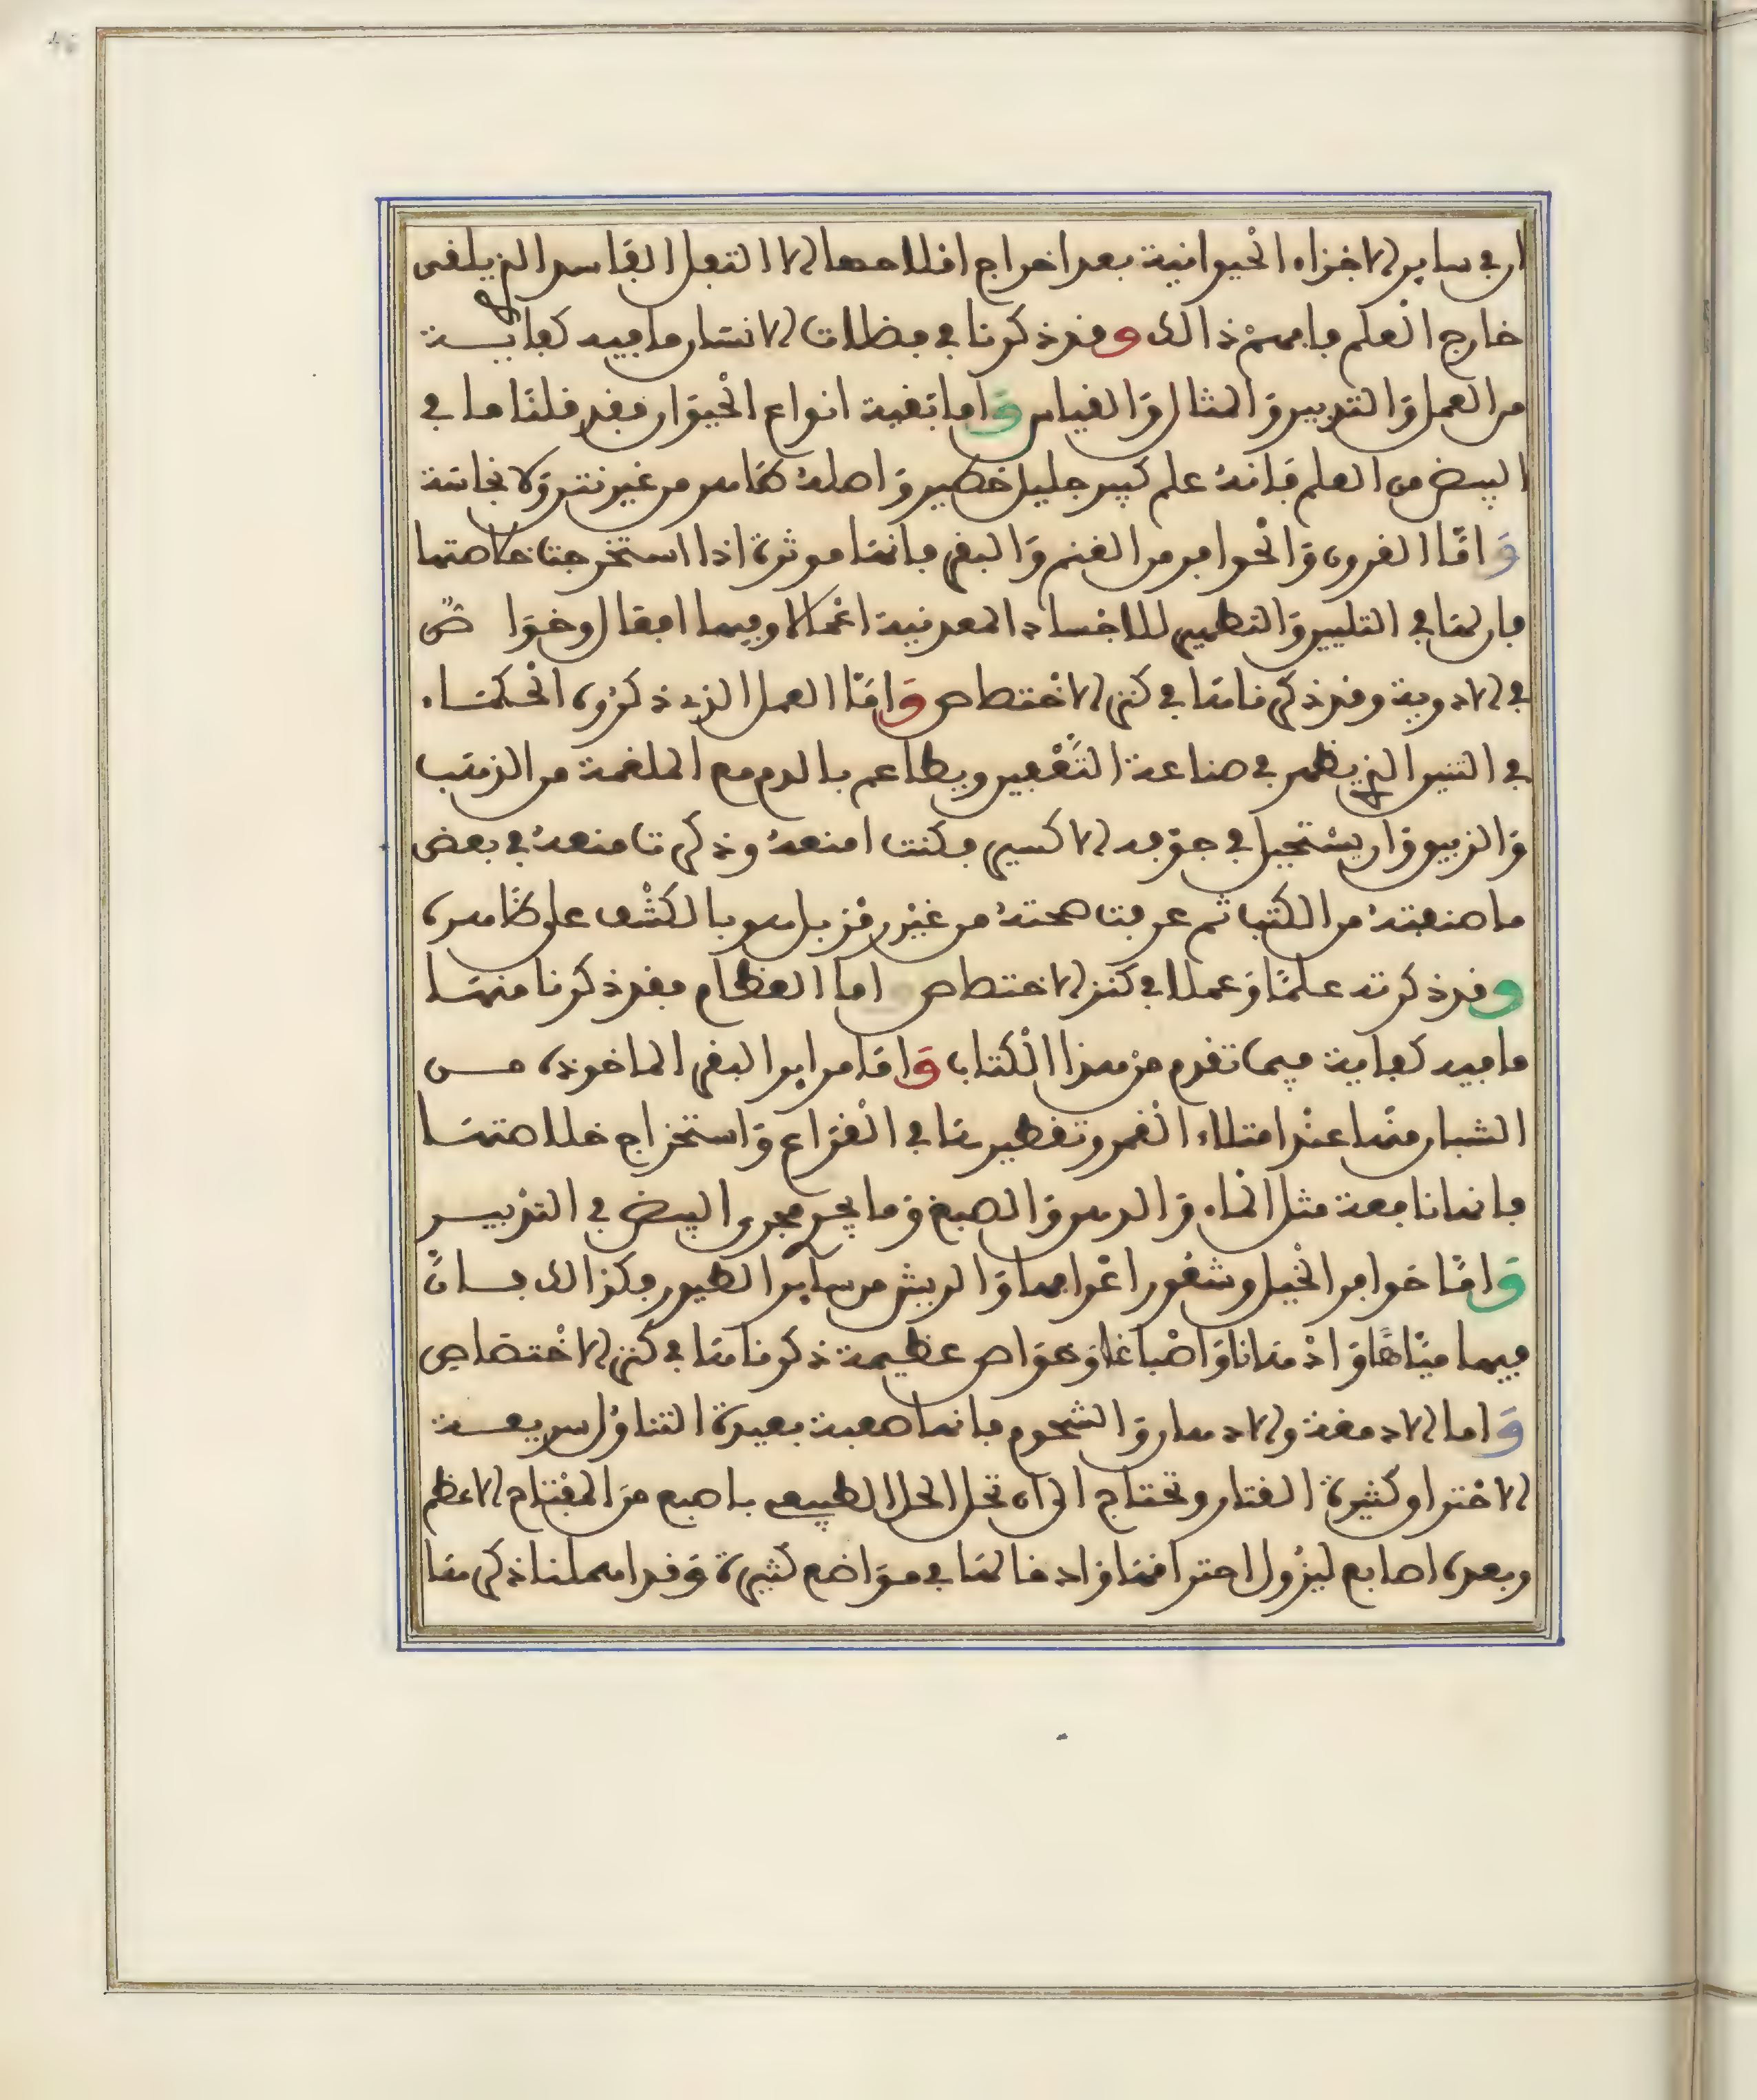 ان في ساير الاجزاء الحيوانية بعد اخراج املاحها الا الثفل الفاسد الذي يلقى
خارج العلم فافهم ذالك وقد ذكرنا في مظلات الانسان ما فيه كفاية
من العمل وَالتدبير وَالمثال وَالقياس وَاما بَقية انواع الحيوَان فقد قلنا ما في
البيض من العلم فانهُ علم كبير جليل خطير وَاصلهُ طاهر من غير نتن وَلا نجاسَة
وَامّا القرون وَالحوافر من الغنم وَالبقر فانهَا موثرة اذا استخرجت خلاصتها
فان لهَا في التليين وَالتطهير للاجساد المعدنية اعْمالا وفيها افعال وخوَاص
في الادوية وقد ذكرناهَا في كنز الاختصاص وَامّا العمل الذي ذكرُوه الحكمَاء
في التنين الذي يظهر في صناعة التّعْفين ويطاعم بالدم مع الملغمة من الذهب
وَالزيبق وَان يستحيل في جوَفه الاكسير فكنت امنعهُ وذكرت منعهُ في بعض
ما صنعتهُ من الكتب ثم عرفت صحتهُ من غيْر رمْز بل هو بالكشْف على ظاهره
وقد ذكرته علمًا وَعملا في كنز الاختصاص اما العظام فقد ذكرنا منهَا
ما فيه كفاية فيما تقدم منْ هذا الكتاب وَامّا مراير البقر الماخوذه مـن
الشبان منْها عنْد امتلاء القمر وتقطيرهَا في القرَاع وَاستخرَاج خلاصتهَا
فانها نافعة مثل الماء وَالدهن وَالصبغ وَما يجري مجرى البيض في التدْبيـر
وَامّا حوافر الخيل وشعُور اعْرافها وَالريش من ساير الطيور فكذالك فـانّ
فيها ميَاهًا وَادْهَانا وَاصْباغا وَخوَاص عظيمة ذكرناهَا في كنز الاختصَاص
وَاما الادمغة والادهان وَالشحوم فانها صعبة بعيدة التناوُل سريعـة
الاحْتراق كثيرة القتار وتحتاج الى ان تحل الحل الطبيعي باصبع منَ المفْتاح الاعظم
وبعده اصابع ليزُول احتراقهَا وَادخالهَا في موَاضع كثيرة وَقد اهملنا ذكرهَا